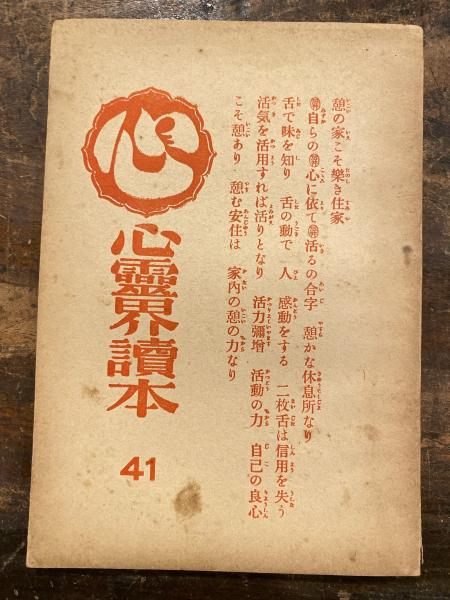 憩の家こそ樂き住家
自らの 心に依て 活るの合字 憩かな休息所なり
舌で味を知り 舌の動で 人 感動をする 二枚舌は信用を失う
活氣を活用すれば活りとなり 活力彌增 活動の力 自己の良心
こそ憩あり 憩む安住は 家內の憩の力なり
心
心靈界讀本
41